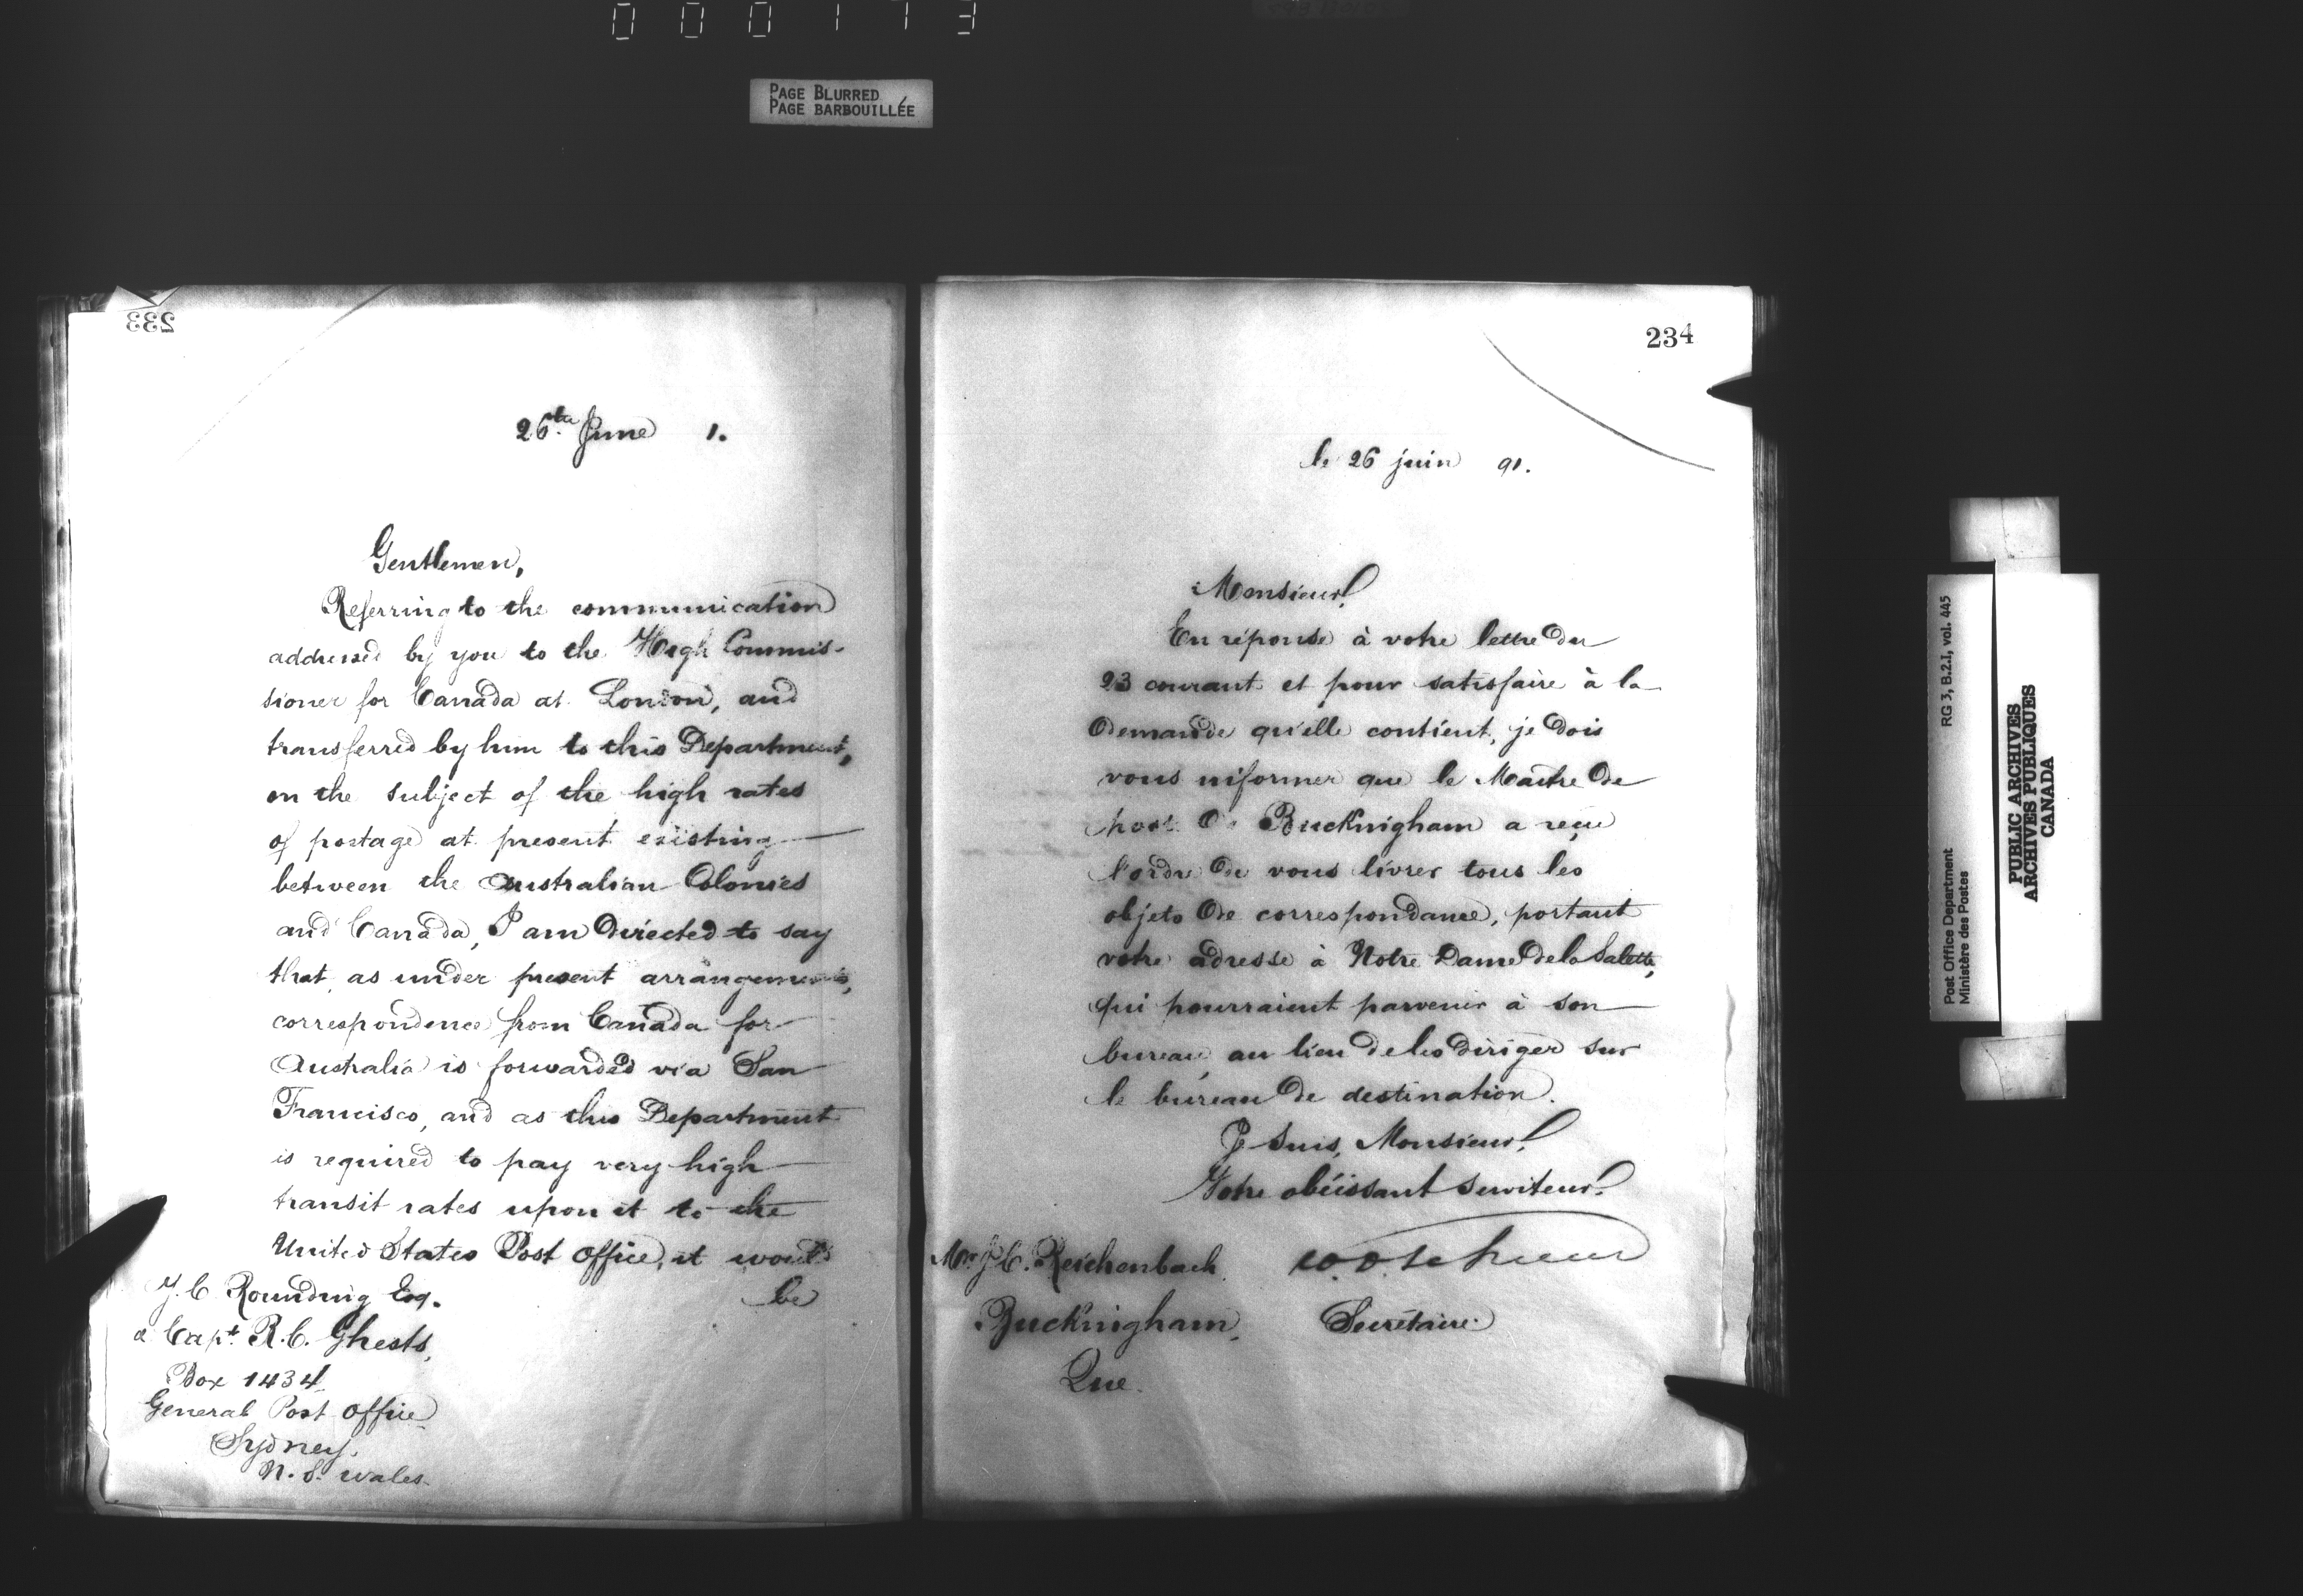 000173
PAGE BLURRED
PAGE BARBOUILLÉE
233
26th June 1.
Gentlemen,
Referring to the communication
addressed by you to the High Commis-
sioner for Canada at London, and
transferred by him to this Department,
on the subject of the high rates
of postage at present existing
between the Australian Colonies
and Canada, I am directed to say
that, as under present arrangements,
correspondence from Canada for
Australia is forwarded via San
Francisco, and as this Department
is required to pay very high
transit rates upon it to the
United States Post Office, it would
be
J. C Rounding Esq.
& Capt. R. C. Ghests,
Box 1434
General Post Office
Sydney.
N. S. Wales.
234
le 26 juin 91.
Monsieur,
En réponse à votre lettre du
23 courant et pour satisfaire à la
demande qu'elle contient, je dois
vous informer que le Maître de
poste de Buckingham a reçu
l'ordre de vous livrer tous les
objets de correspondance, portant
votre adresse à Notre Dame de la Salette,
qui pourraient parvenir à son
bureau, au lieu de les diriger sur
le bureau de destination.
Je suis, Monsieur,
Votre obéissant serviteur.
Mr. J. C. Reichenbach
Buckingham,
Que.
Secrétaire
Post Office Department RG 3, B.2.I, vol. 445
Ministère des Postes
PUBLIC ARCHIVES
ARCHIVES PUBLIQUES
CANADA